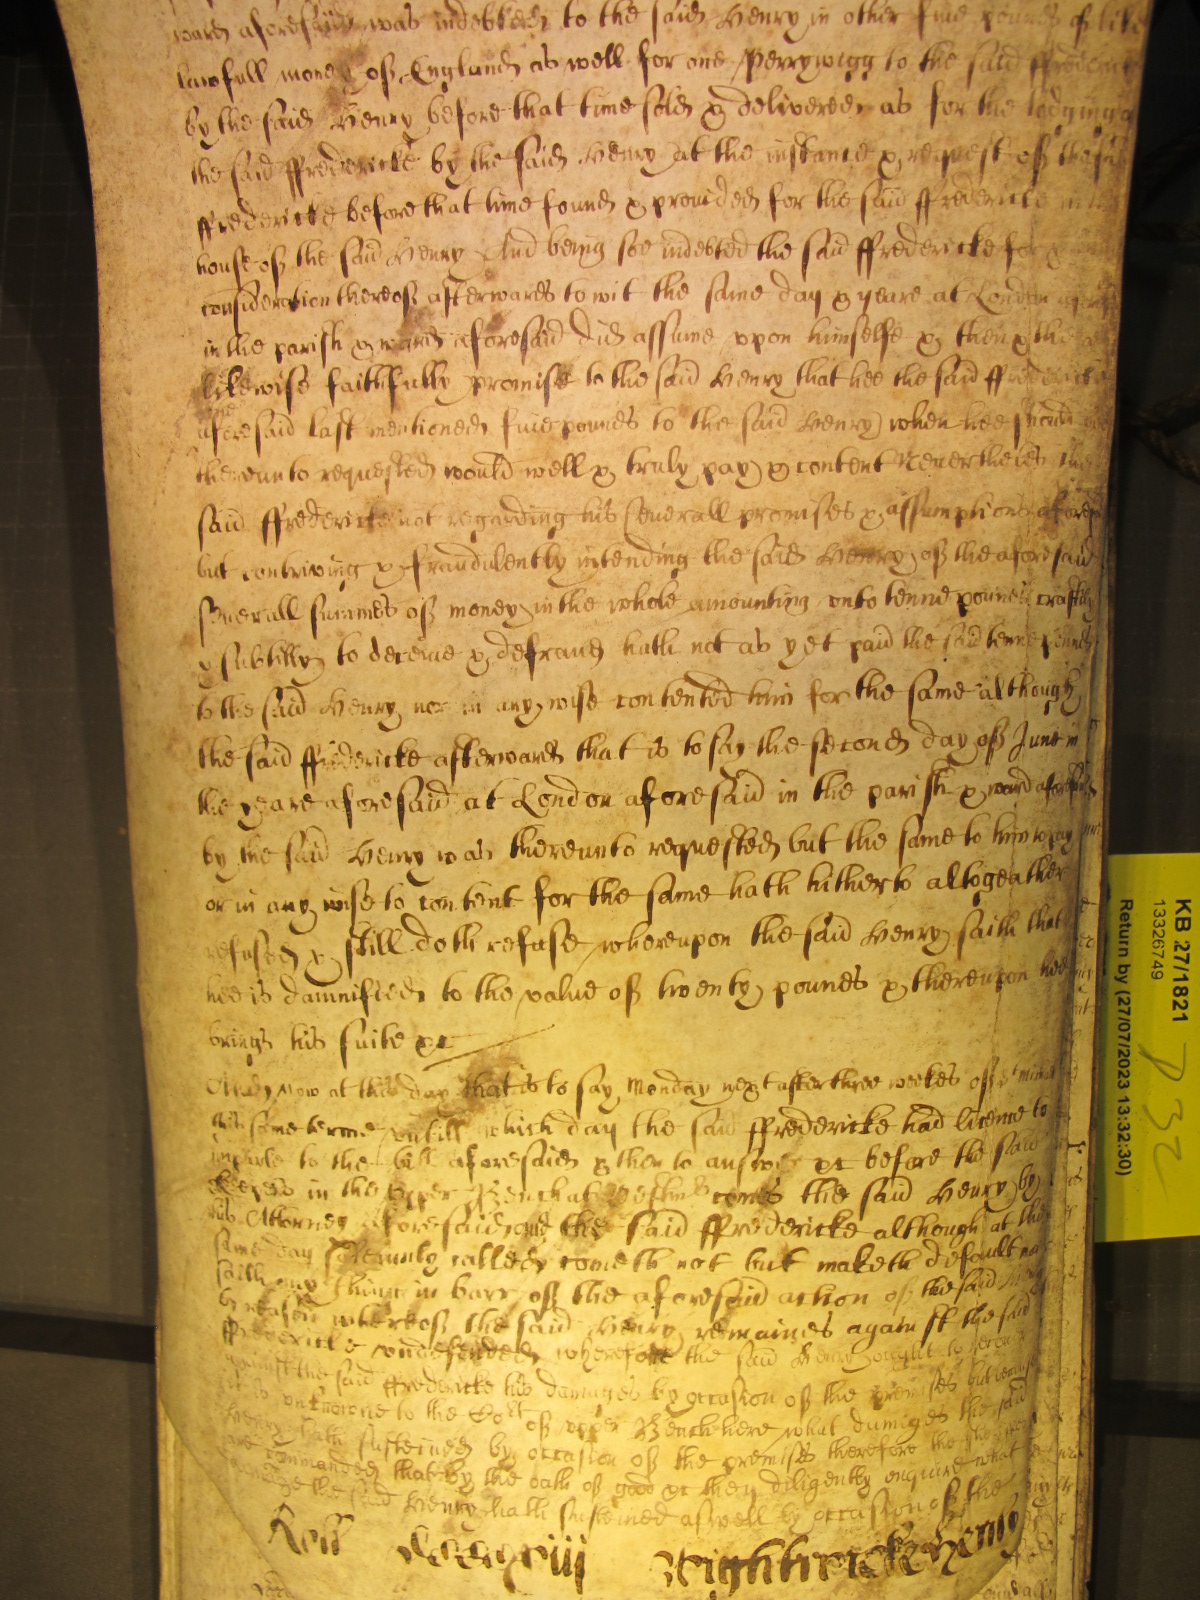 ward aforesaid was indebted to the said Henry in other fiue pounds of like
lawfull money of England as well for one Perrywigg to the said ffredericke
by the said Henry before that time sold & delivered as for the lodging
the said ffredericke by the said Henry at the instance & request of the said
ffredericke before that time found & prouided for the said ffredericke in the
house of the said Henry And being soe indebted the said ffredericke for &
consideration thereof afterwards to wit the same day & yeare at London
in the parish & ward aforesaid did assume vpon himselfe & then & there
likewise faithfully promise to the said Henry that hee the said ffredericke
aforesaid last mentioned fiue pounds to the said Henry when hee should
thereunto requested would well & truly pay & content Neuertheles the
said ffredericke not regarding his seuerall promises & assumptions aforesd
but contriving & fraudulently intending the said Henry of the aforesaid
seuerall summes of money in the whole amounting vnto tenne pounds craftily
& subtilly to deceiue & defraud hath not as yet paid the said tenne pounds
to the said Henry nor in any wise contented him for the same although
the said ffredericke afterwards that is to say the second day of June in
the yeare aforesaid at London aforesaid in the parish & ward aforesaid
by the said Henry was thereunto requested but the same to him to pay
or in any wise to content for the same hath hitherto altogeather
refused & still doth refuse whereupon the said Henry saith that
hee is damnified to the value of twenty pounds & thereupon hee
brings his suite &c
And now at this day that is to say Monday next after three weekes of St Mich
this same terme vntill which day the said ffredericke had licence to
imparle to the bill aforesaid & then to answer &c before the said
keepers in the vpper Bench at Westmr comes the said Henry by
his Attorney aforesaid and the said ffredericke although at the
same day solemnly called cometh not but maketh default nor
saith any thing in barr of the aforesaid action of the said Henry
by reason whereof the said Henry remaines against the said
ffredericke vndefended wherefore the said Henry ought to recover
against the said ffredericke his damages by occasion of the premises but because
it is vnknowne to the Court of vpper Bench here what damages the said
Henry hath susteined by occasion of the premises therefore the sheriffs
are commanded that by the oath of good &c they diligently enquire what
damage the said Henry hath susteined aswell by occasion of the
Roll Henry
KB 27/1821
13326749
Return by (27/07/2023 13:32:30)